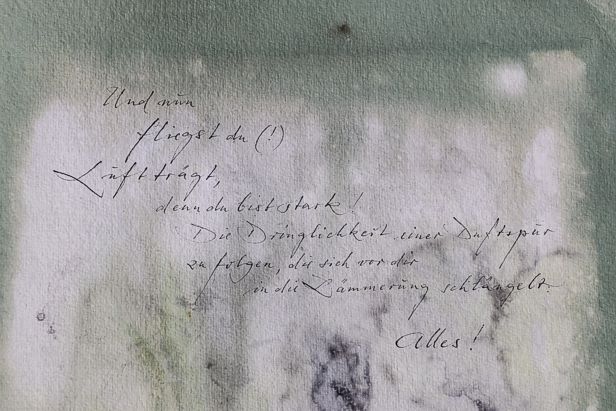 Und nun
fliegst du (!)
Luft trägt,
denn du bist stark!
Die Dringlichkeit einer Duftspur
zu folgen, die sich vor dir
in die Dämmerung schlängelt.
Alles!